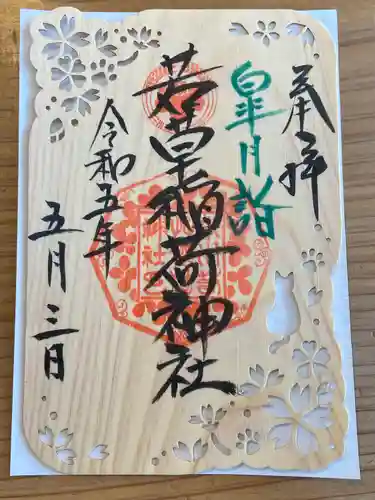 奉拝
皐月詣
若草稲荷神社
令和五年
五月三日